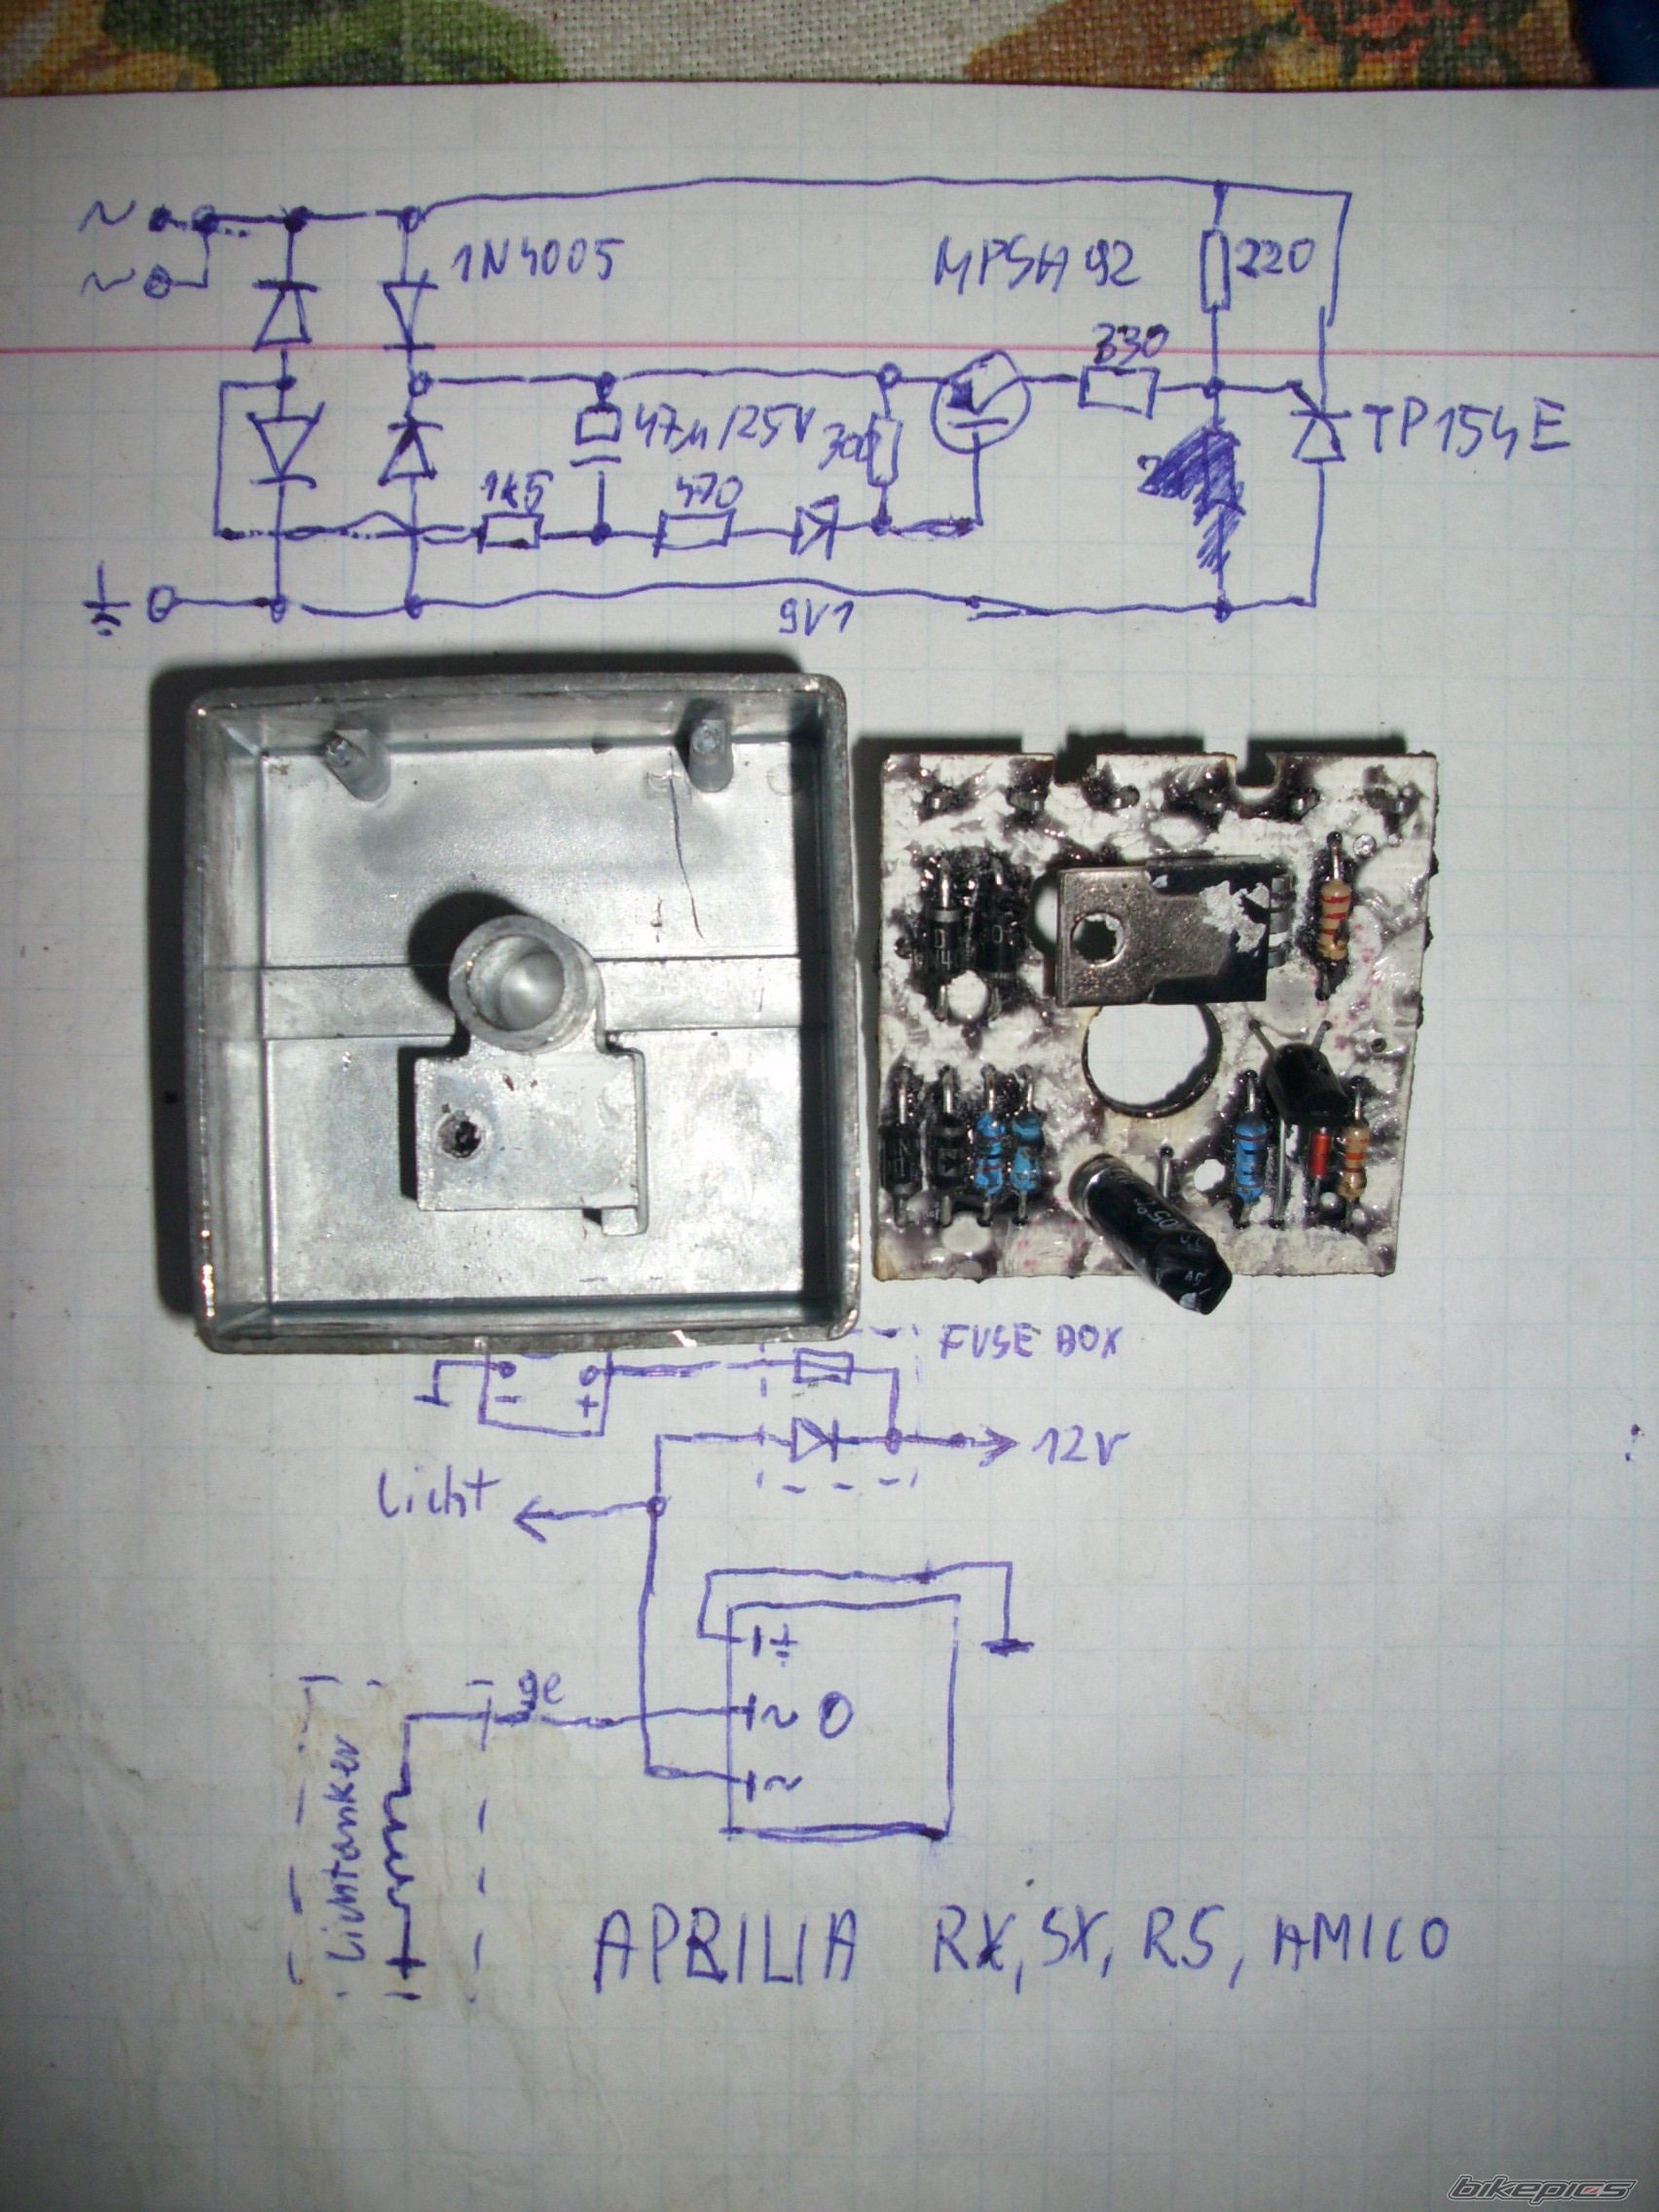 ~
~
1N4005
MPSH 92
220
330
47µ/25V
300
TP154E
1k5
470
9V1
FUSE BOX
- +
12V
Licht
ge
~ O
~
Lichtanker
APRILIA RX, SX, RS, AMICO
bikepics